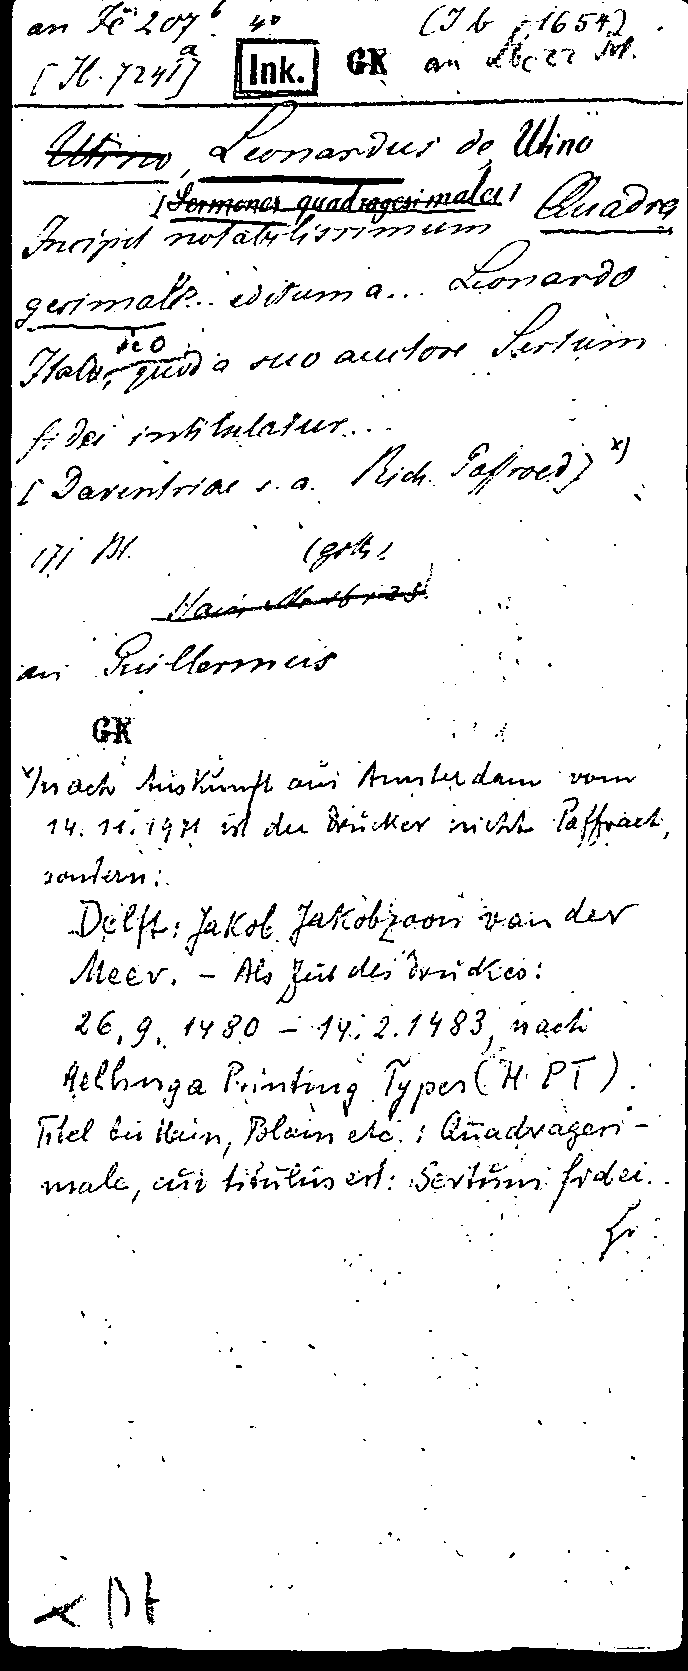 an Fë 207 b 4° (Jb 1654)
[Jb. 7241 a] Ink. GK an
Utino, Leonardus de Utino
[Sermones quadragesimales]
Incipit notabilissimum Quadra
gesimale... editum a... Leonardo
Italo, quod a suo auctore Sertum
fidei intitulatur...
[Daventriae s. a. Rich. Paffroed] x)
171 Bl. (goth.)
an Guillermus
GK
x) nach Auskunft aus Amsterdam vom
14. 11. 1971 ist der Drucker nicht Paffraet,
sondern:
Delft: Jakob Jakobzoon van der
Meer. – Als Zeit des Druckes:
26. 9. 1480 – 14. 2. 1483, nach
Hellinga Printing Types (HPT).
Titel bei Hain, Polain etc.: Quadragesi-
male, cui titulus est: Sertum fidei.